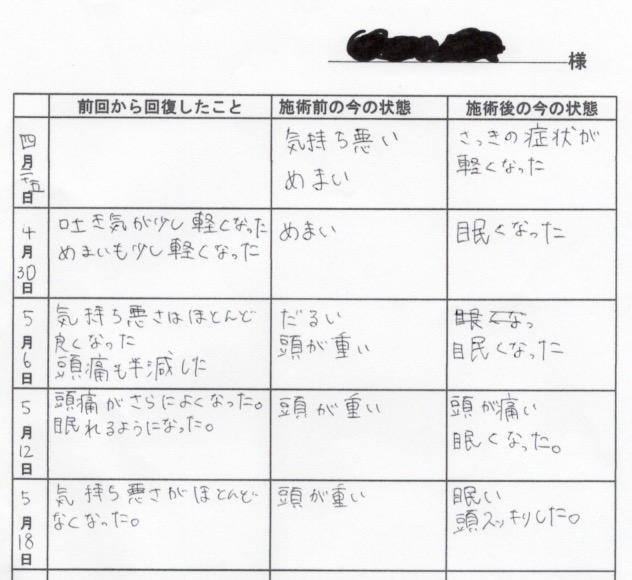 様
前回から回復したこと 施術前の今の状態 施術後の今の状態
四月二十五日
気持ち悪い
めまい
さっきの症状が
軽くなった
4月30日
吐き気が少し軽くなった
めまいも少し軽くなった
めまい
眠くなった
5月6日
気持ち悪さはほとんど
良くなった
頭痛も半減した
だるい
頭が重い
眠くなっ
眠くなった
5月12日
頭痛がさらによくなった。
眠れるようになった。
頭が重い
頭が痛い
眠くなった。
5月18日
気持ち悪さがほとんど
なくなった。
頭が重い
眠い
頭スッキリした。